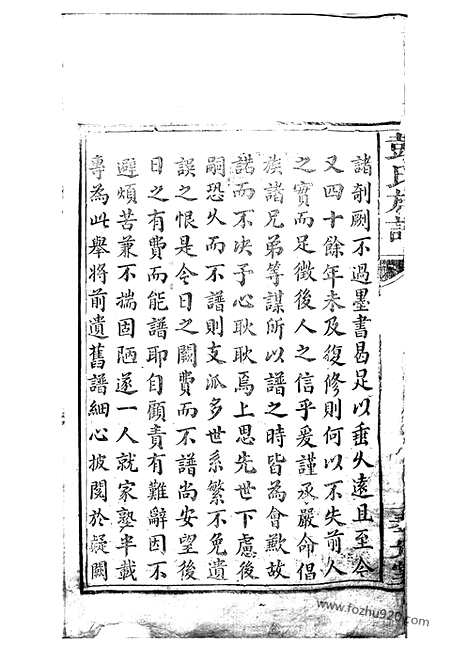 彭氏族譜
諸剞劂不過墨書曷足以垂久遠且至今
又四十餘年未及復修則何以不失前人
之實而足徵後人之信乎爰謹承嚴命倡
族諸兄弟等謀所以譜之時皆為會歉故
諾而不決予心耿耿焉上思先世下慮後
嗣恐久而不譜則支派多世系繁不免遺
誤之恨是今日之闕費而不譜尚安望後
日之有費而能譜耶自顧責有難辭因不
避煩苦兼不揣固陋遂一人就家塾半載
專為此舉將前遺舊譜細心披閱於疑闕
www.fozhu920.com